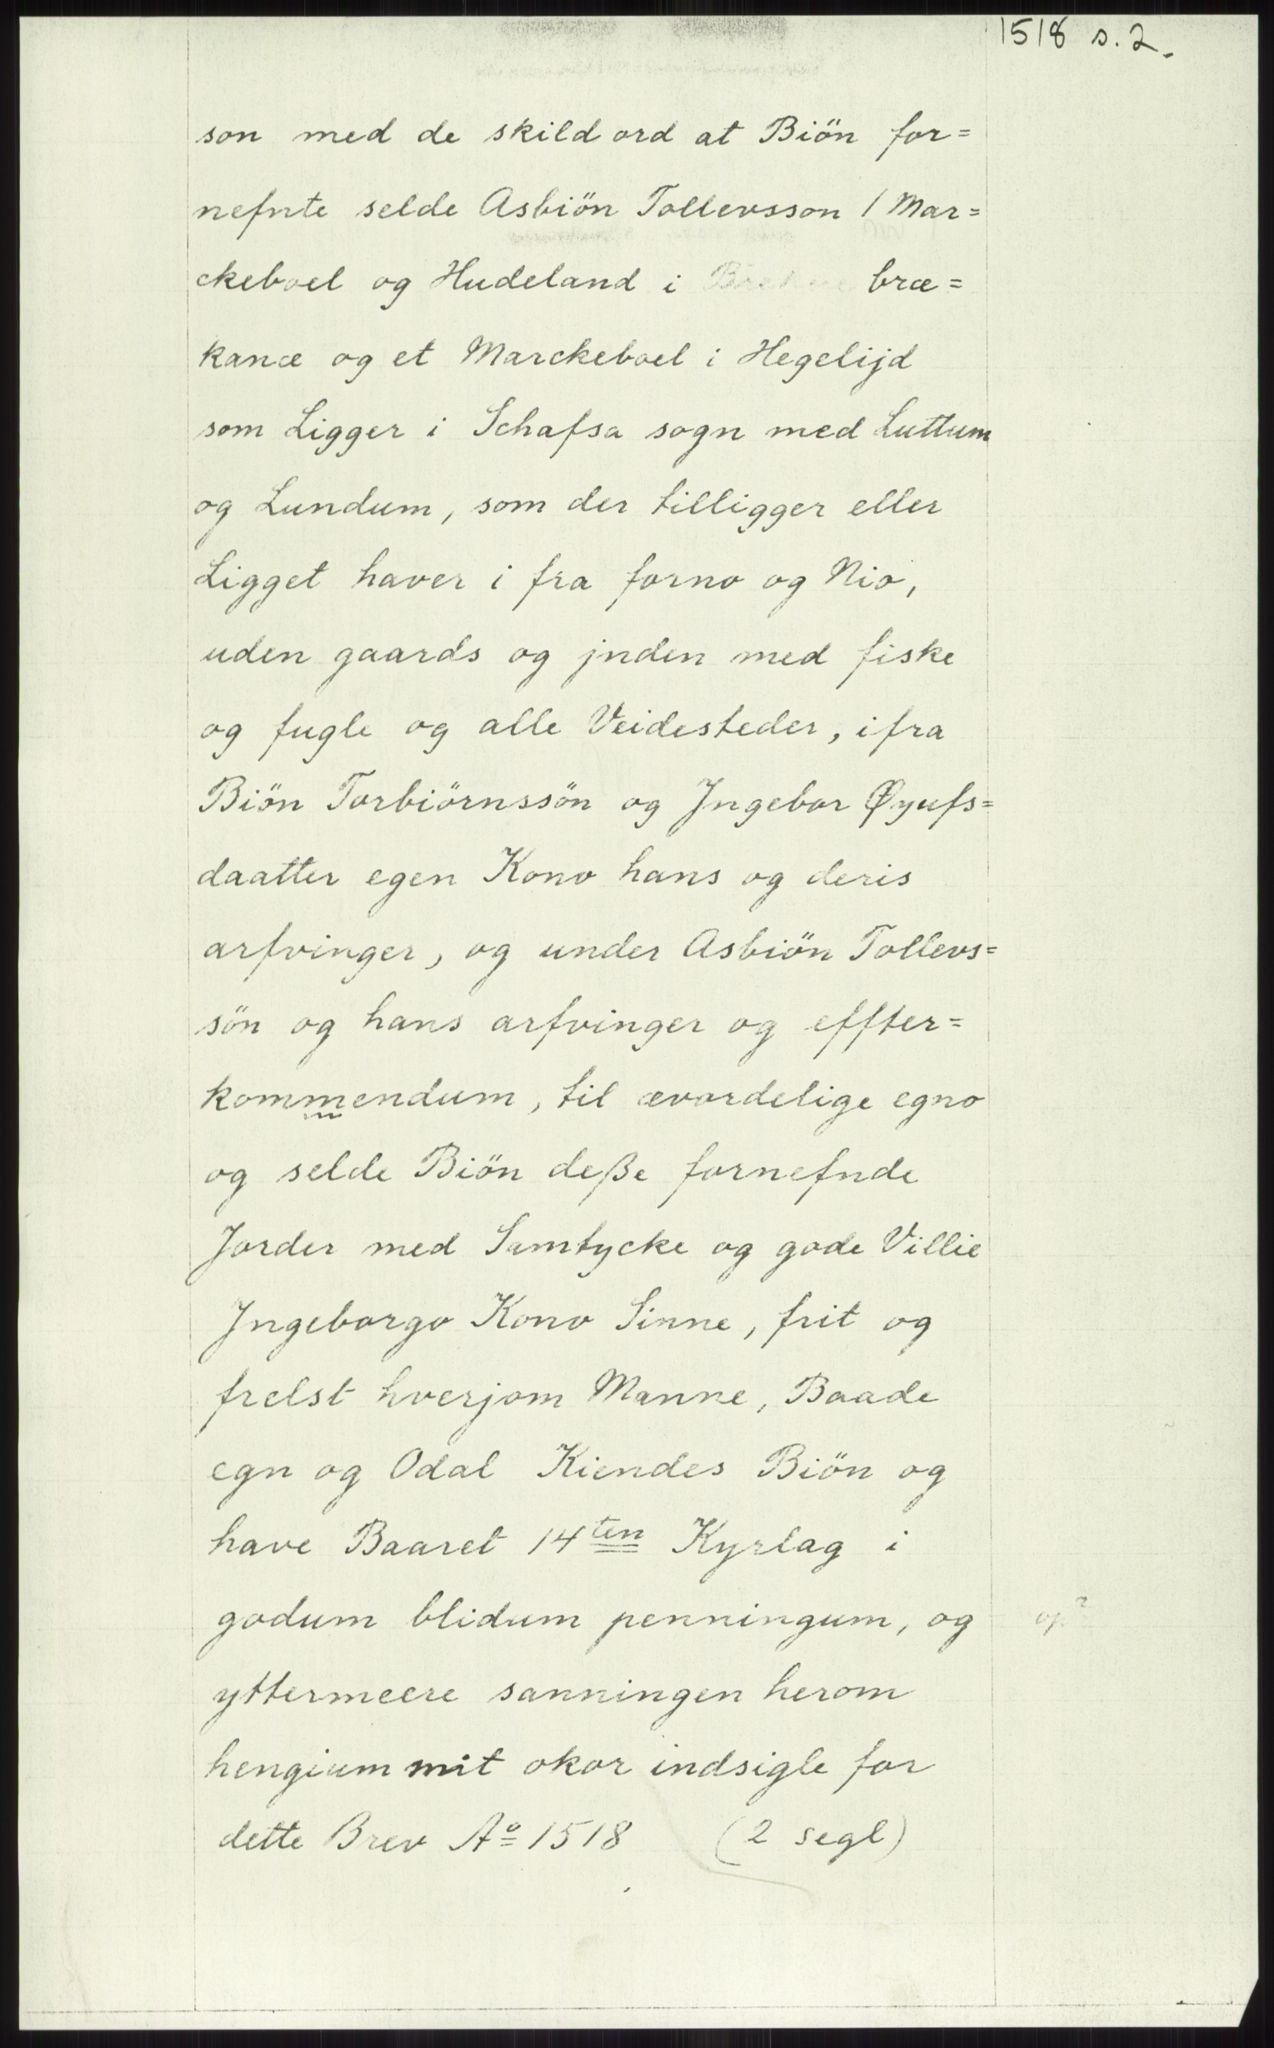 1518 s. 2.
son med de skild ord at Biön for=
nefnte selde Asbiön Tollevsson 1 Mar=
ckeboel og Hudeland i bræ=
kanæ og et Marckeboel i Hegelijd
som Ligger i Schafsa sogn med Luttum
og Lundum, som der tilligger eller
Ligget haver i fra forno og Nio,
uden gaards og jnden med fiske
og fugle og alle Veidesteder, ifra
Biön Torbiörnssön og Jngebor Øyufs=
daatter egen Kono hans og deris
arfvinger, og under Asbiön Tollevs=
sön og hans arfvinger og effter=
kommendum, til ævordelige egno
og selde Biön deße fornefnde
Jorder med Samtycke og gode Villie
Jngeborgo Kono Sinne, frit og
frelst hverjom Manne, Baade
egn og Odal Kiendes Biön og
have Baaret 14ten Kyrlag i
godum blidum penningum, og op?
yttermeere sanningen herom
hengium mit okor indsigle for
dette Brev Aº 1518 (2 segl)